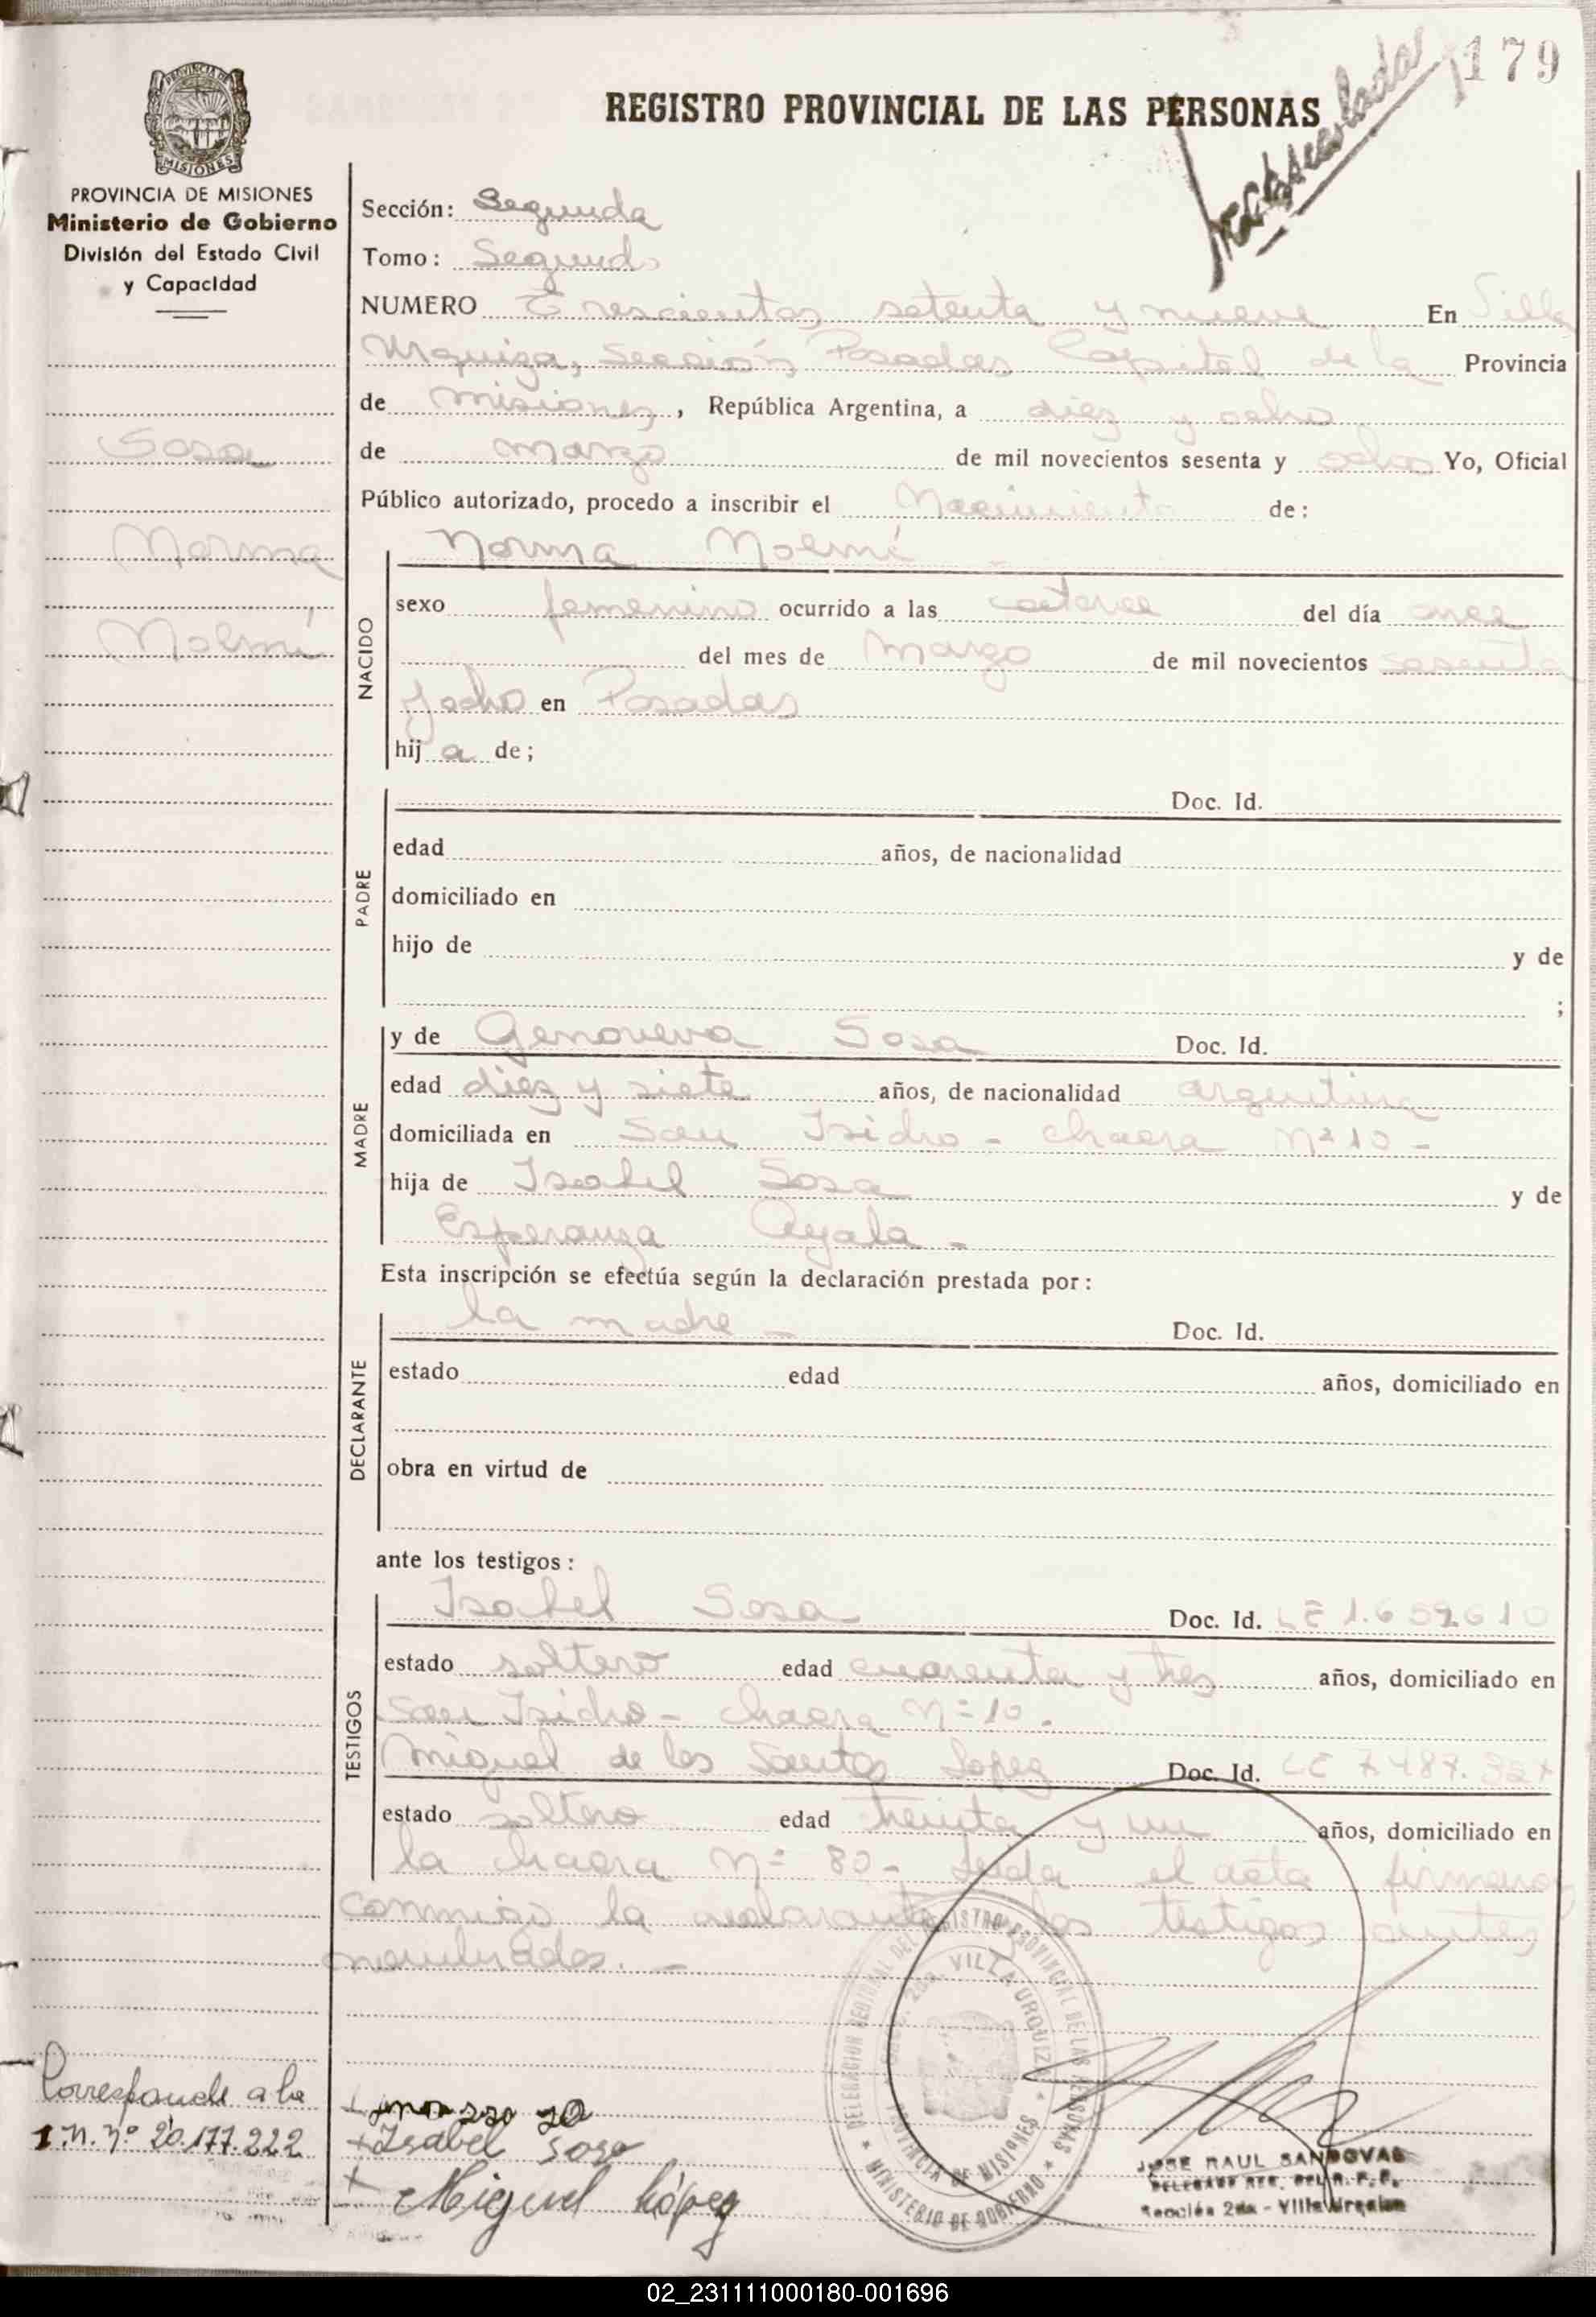 179
REGISTRO PROVINCIAL DE LAS PERSONAS
PROVINCIA DE MISIONES
MISIONES
PROVINCIA DE MISIONES
Ministerio de Gobierno
División del Estado Civil
y Capacidad
Sosa
Norma
Noemí
Sección: Segunda
Tomo: Segundo
NUMERO Trescientos setenta y nueve En Villa
Urquiza, Sección, Posadas Capital de la Provincia
de Misiones, República Argentina, a diez y ocho
de marzo de mil novecientos sesenta y ocho Yo, Oficial
Público autorizado, procedo a inscribir el Nacimiento de:
NACIDO
Norma Noemí -
sexo femenino ocurrido a las catorce del día once
del mes de Marzo de mil novecientos sesenta
y ocho en Posadas
hij a de;
PADRE
Doc. Id.
edad años, de nacionalidad
domiciliado en
hijo de y de
;
MADRE
y de Genoveva Sosa Doc. Id.
edad diez y siete años, de nacionalidad argentina
domiciliada en San Isidro - chacra Nº 10 -
hija de Isabel Sosa y de
Esperanza Ayala -
Esta inscripción se efectúa según la declaración prestada por:
DECLARANTE
la madre - Doc. Id.
estado edad años, domiciliado en
obra en virtud de
ante los testigos:
TESTIGOS
Isabel Sosa Doc. Id. LE 1.659610
estado soltero edad cuarenta y tres años, domiciliado en
San Isidro - chacra Nº 10 -
Miguel de los Santos Lopez Doc. Id. LE 7.487.327
estado soltero edad treinta y un años, domiciliado en
la chacra Nº 80 - Leida el acta firmaron
conmigo la declarante y los testigos antes
nombrados. -
DELEGACION REGIONAL DEL REGISTRO PROVINCIAL DE LAS PERSONAS
MINISTERIO DE GOBIERNO
2da. VILLA URQUIZA
PROVINCIA DE MISIONES
Corresponde a la
I N. Nº 20.177.222
+ Isabel Sosa
+ Miguel López
JOSE RAUL SANDOVAL
DELEGADO REG. DEL R. P. P.
Sección 2da - Villa Urquiza
02_231111000180-001696